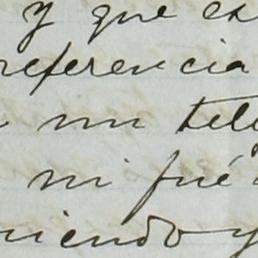 y que es
referencia
mi tele
ni fué
riendo y